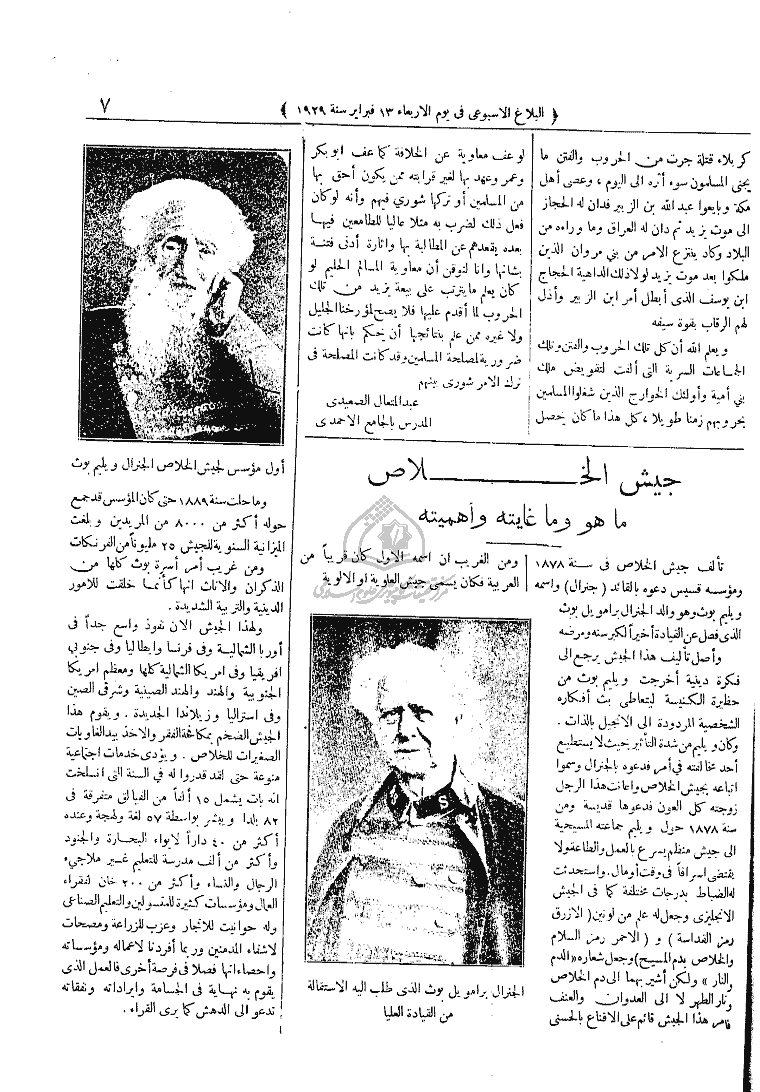 ﴿ البلاغ الاسبوعى فى يوم الاربعاء ١٣ فبراير سنة ١٩٢٩ ﴾
٧
كربلاء قتلة جرت من الحروب والفتن ما
يجنى المسلمون سوء أثره الى اليوم ، وعصى أهل
مكة وبايعوا عبد الله بن الزبير فدان له الحجاز
الى موت يزيد ثم دان له العراق وما وراءه من
البلاد وكاد ينتزع الامر من بني مروان الذين
ملكوا بعد موت يزيد لولا ذلك الداهية الحجاج
ابن يوسف الذى أبطل أمر ابن الزبير وأذل
لهم الرقاب بقوة سيفه
ويعلم الله أن كل تلك الحروب والفتن وتلك
الجماعات السرية التى ألفت لتقويض ملك
بني أمية وأولئك الخوارج الذين شغلوا المسلمين
بحروبهم زمنا طويلا ، كل هذا ما كان يحصل
لو عف معاوية عن الخلافة كما عف ابو بكر
وعمر وعهد بها لغير قرابته ممن يكون أحق بها
من المسلمين أو تركها شورى فيهم وأنه لو كان
فعل ذلك لضرب به مثلا عاليا للطامعين فيها
بعده يقعدهم عن المطالبة بها واثارة أدنى فتنة
بشأنها وانا لنوقن أن معاوية المسالم الحليم لو
كان يعلم ما يترتب على بيعة يزيد من تلك
الحروب لما أقدم عليها فلا يصح لمؤرخنا الجليل
ولا غيره ممن علم بنتائجها أن حكم بانها كانت
ضرورية لمصلحة المسلمين وقد كانت المصلحة فى
ترك الامر شورى بينهم
عبد المتعال الصعيدى
المدرس بالجامع الاحمدى
جيش الخلاص
ما هو وما غايته وأهميته
تألف جيش الخلاص فى سنة ١٨٧٨
ومؤسسه قسيس دعوه بالقائد ( جنرال ) واسمه
ويليم بوث وهو والد الجنرال برامويل بوث
الذى فصل عن القيادة أخيراً لكبر سنه ومرضه
وأصل تأليف هذا الجيش يرجع الى
فكرة دينية أخرجت ويليم بوث من
حظيرة الكنيسة ليتعاطى بث أفكاره
الشخصية المردودة الى الانجيل بالذات .
وكان ويليم من شدة التأثير بحيث لا يستطيع
أحد مخالفته في أمر فدعوه بالجنرال وسموا
اتباعه بجيش الخلاص واعانت هذا الرجل
زوجته كل العون فدعوها قديسة ومن
سنة ١٨٧٨ حول ويليم جماعته المسيحية
الى جيش منظم يسرع بالعمل والطاعة ولا
يقتضى اسرافاً فى وقت أو مال . واستحدثت
له الضباط بدرجات مختلفة كما فى الجيش
الانجليزى وجعل له علم من لونين ( الازرق
رمز القداسة ) و ( الاحمر رمز السلام
والخلاص بدم المسيح ) وجعل شعاره « الدم
والنار » ولكن أشير بهما الى دم الخلاص
ونار الطهر لا الى العدوان والعنف
فامر هذا الجيش قائم على الاقناع بالحسنى
ومن الغريب ان اسمه الاول كان قريباً من
العربية فكان يسمى جيش العلوية او الالوية
الجنرال برامويل بوث الذى طلب اليه الاستقالة
من القيادة العليا
أول مؤسس لجيش الخلاص الجنرال ويليم بوث
وما حلت سنة ١٨٨٩ حتى كان المؤسس قد جمع
حوله أكثر من ٨٠٠٠ من المريدين وبلغت
الميزانية السنوية للجيش ٢٥ مليوناً من الفرنكات
ومن غريب أمر أسرة بوث كلها من
الذكران والاناث انها كأنما خلقت للامور
الدينية والتربية الشديدة .
ولهذا الجيش الان نفوذ واسع جداً فى
أوربا الشمالية وفى فرنسا وايطاليا وفى جنوبي
افريقيا وفى امريكا الشمالية كلها ومعظم امريكا
الجنوبية والهند والهند الصينية وشرقى الصين
وفى استراليا وزيلاندا الجديدة . ويقوم هذا
الجيش الضخم بمكافحة الفقر والاخذ بيد الغاويات
الصغيرات للخلاص . ويؤدى خدمات اجتماعية
منوعة حتى لقد قدروا له في السنة التى انسلخت
انه بات يشمل ١٥ ألفاً من الفيالق متفرقة فى
٨٢ بلدا ويبشر بواسطة ٥٧ لغة ولهجة وعنده
أكثر من ٤٠ داراً لايواء البحارة والجنود
وأكثر من ألف مدرسة للتعليم غير ملاجىء
الرجال والنساء وأكثر من ٢٠٠ خان لفقراء
العمال ومؤسسات كثيرة للمغسولين والتعليم الصناعى
وله حوانيت للاتجار وعزب للزراعة ومصحات
لاشفاء المدمنين وربما أفردنا لاعماله ومؤسساته
واحصاءاتها فصلا فى فرصة أخرى فالعمل الذى
يقوم به نهاية فى الجسامة وايراداته ونفقاته
تدعو الى الدهش كما يرى القراء .